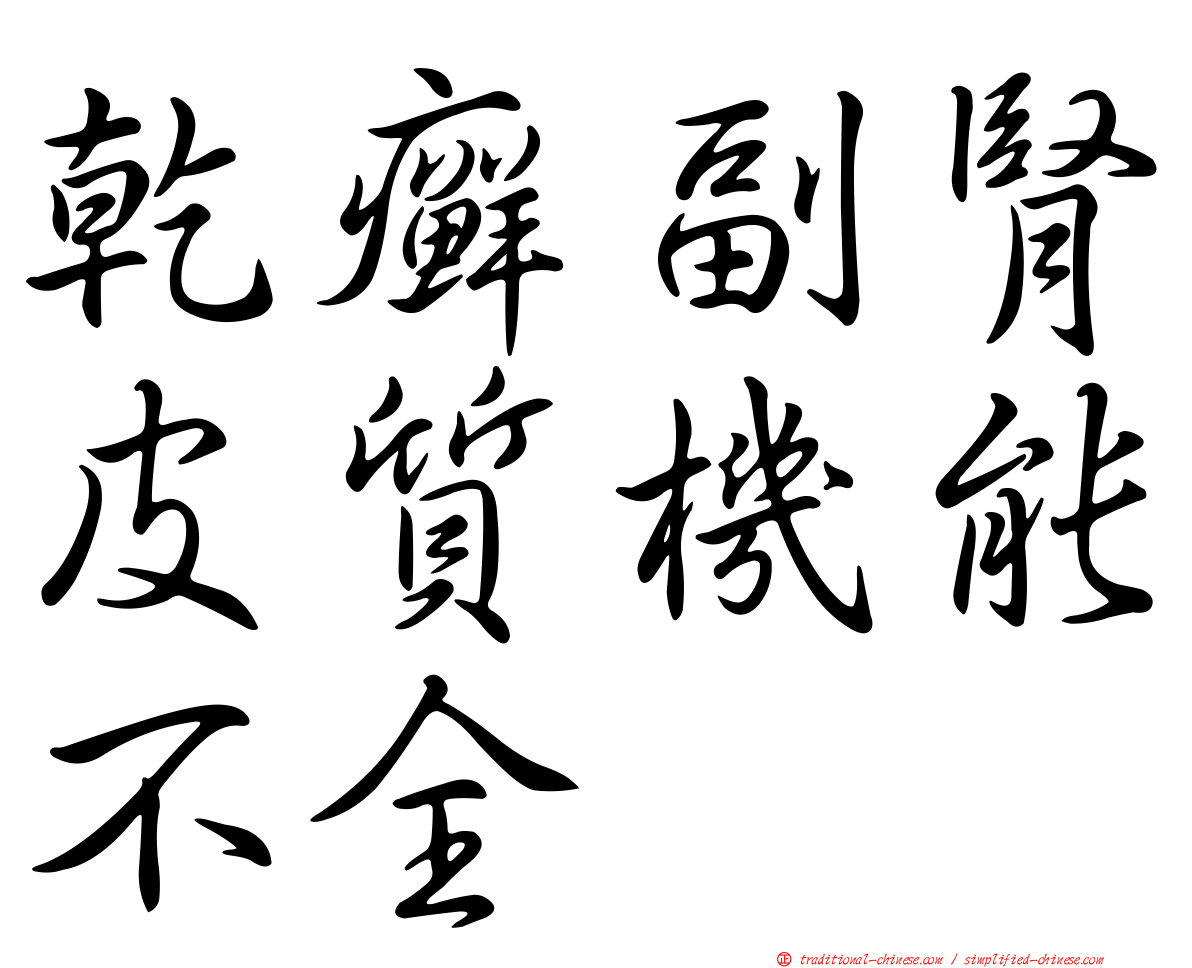 乾癬副腎
皮質機能
不全
正 traditional-chinese.com / simplified-chinese.com